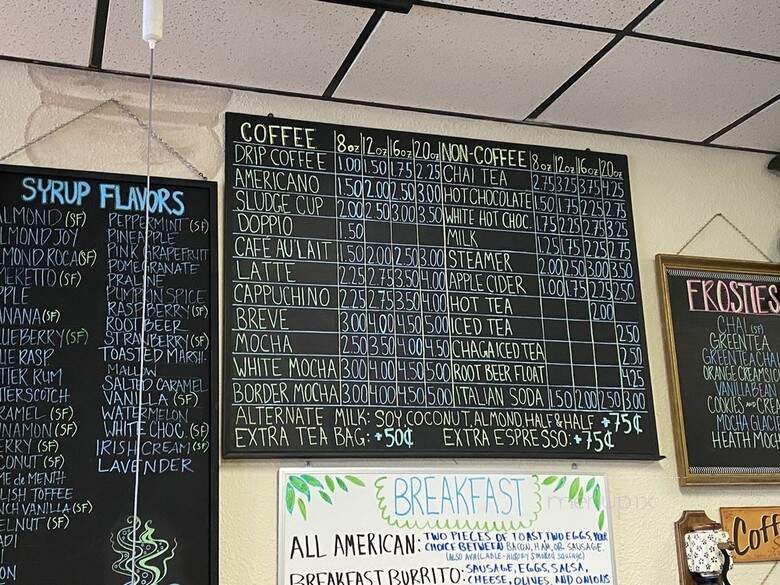 SYRUP FLAVORS
ALMOND (SF)
ALMOND JOY
ALMOND ROCA (SF)
(SF)
APPLE
BANANA (SF)
BLUEBERRY (SF)
RASP
TIKI RUM
BUTTERSCOTCH
CARAMEL (SF)
CINNAMON (SF)
(SF)
COCONUT (SF)
CREME de MENTH
ENGLISH TOFFEE
FRENCH VANILLA (SF)
HAZELNUT (SF)
PEPPERMINT (SF)
PINEAPPLE
PINK GRAPEFRUIT
POMEGRANATE
PRALINE
PUMPKIN SPICE
RASPBERRY (SF)
ROOT BEER
STRAWBERRY (SF)
TOASTED MARSH-
MALLOW
SALTED CARAMEL
VANILLA (SF)
WATERMELON
WHITE CHOC. (SF)
IRISH CREAM (SF)
LAVENDER
COFFEE 8oz 12oz 16oz 20oz
DRIP COFFEE 1.00 1.50 1.75 2.25
AMERICANO 1.50 2.00 2.50 3.00
SLUDGE CUP 2.00 2.50 3.00 3.50
DOPPIO 1.50
CAFÉ AU LAIT 1.50 2.00 2.50 3.00
LATTE 2.25 2.75 3.50 4.00
CAPPUCHINO 2.25 2.75 3.50 4.00
BREVE 3.00 4.00 4.50 5.00
MOCHA 2.50 3.50 4.00 4.50
WHITE MOCHA 3.00 4.00 4.50 5.00
BORDER MOCHA 3.00 4.00 4.50 5.00
NON-COFFEE 8oz 12oz 16oz 20oz
CHAI TEA 2.75 3.25 3.75 4.25
HOT CHOCOLATE 1.50 1.75 2.25 2.75
WHITE HOT CHOC. 1.75 2.25 2.75 3.25
MILK 1.25 1.75 2.25 2.75
STEAMER 2.00 2.50 3.00 3.50
APPLE CIDER 1.00 1.75 2.25 2.50
HOT TEA 2.00
ICED TEA 2.50
CHAGA ICED TEA 2.50
ROOT BEER FLOAT 4.25
ITALIAN SODA 1.50 2.00 2.50 3.00
ALTERNATE MILK: SOY, COCONUT, ALMOND, HALF & HALF +75¢
EXTRA TEA BAG: +50¢ EXTRA ESPRESSO: +75¢
BREAKFAST
ALL AMERICAN: TWO PIECES OF TOAST, TWO EGGS, YOUR
CHOICE BETWEEN BACON, HAM, OR SAUSAGE.
(ALSO AVAILABLE - HICKORY SMOKED SAUSAGE)
BREAKFAST BURRITO: SAUSAGE, EGGS, SALSA,
CHEESE, OLIVES, AND ONIONS
FROSTIES
CHAI (SF)
GREEN TEA
GREEN TEA CHAI
ORANGE CREAMSI
VANILLA BEAN
COOKIES AND CRE
MOCHA GLACI
HEATH MOC
Coff
menupix